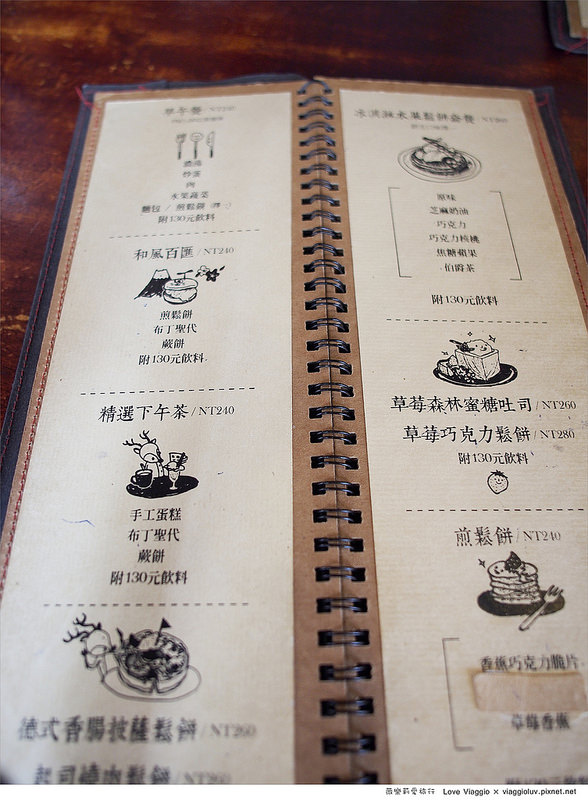 早午餐 / NT250
濃湯
炒蛋
肉
水果蔬菜
麵包 / 煎鬆餅 (擇一)
附130元飲料
和風百匯 / NT240
煎鬆餅
布丁聖代
蕨餅
附130元飲料
精選下午茶 / NT240
手工蛋糕
布丁聖代
蕨餅
附130元飲料
德式香腸披薩鬆餅 / NT260
冰淇淋水果鬆餅套餐
原味
芝麻奶油
巧克力
巧克力核桃
焦糖蘋果
伯爵茶
附130元飲料
草莓森林蜜糖吐司 / NT260
草莓巧克力鬆餅 / NT280
附130元飲料
煎鬆餅 / NT240
香蕉巧克力脆片
草莓香蕉
Love Viaggio × viaggioluv.pixnet.net